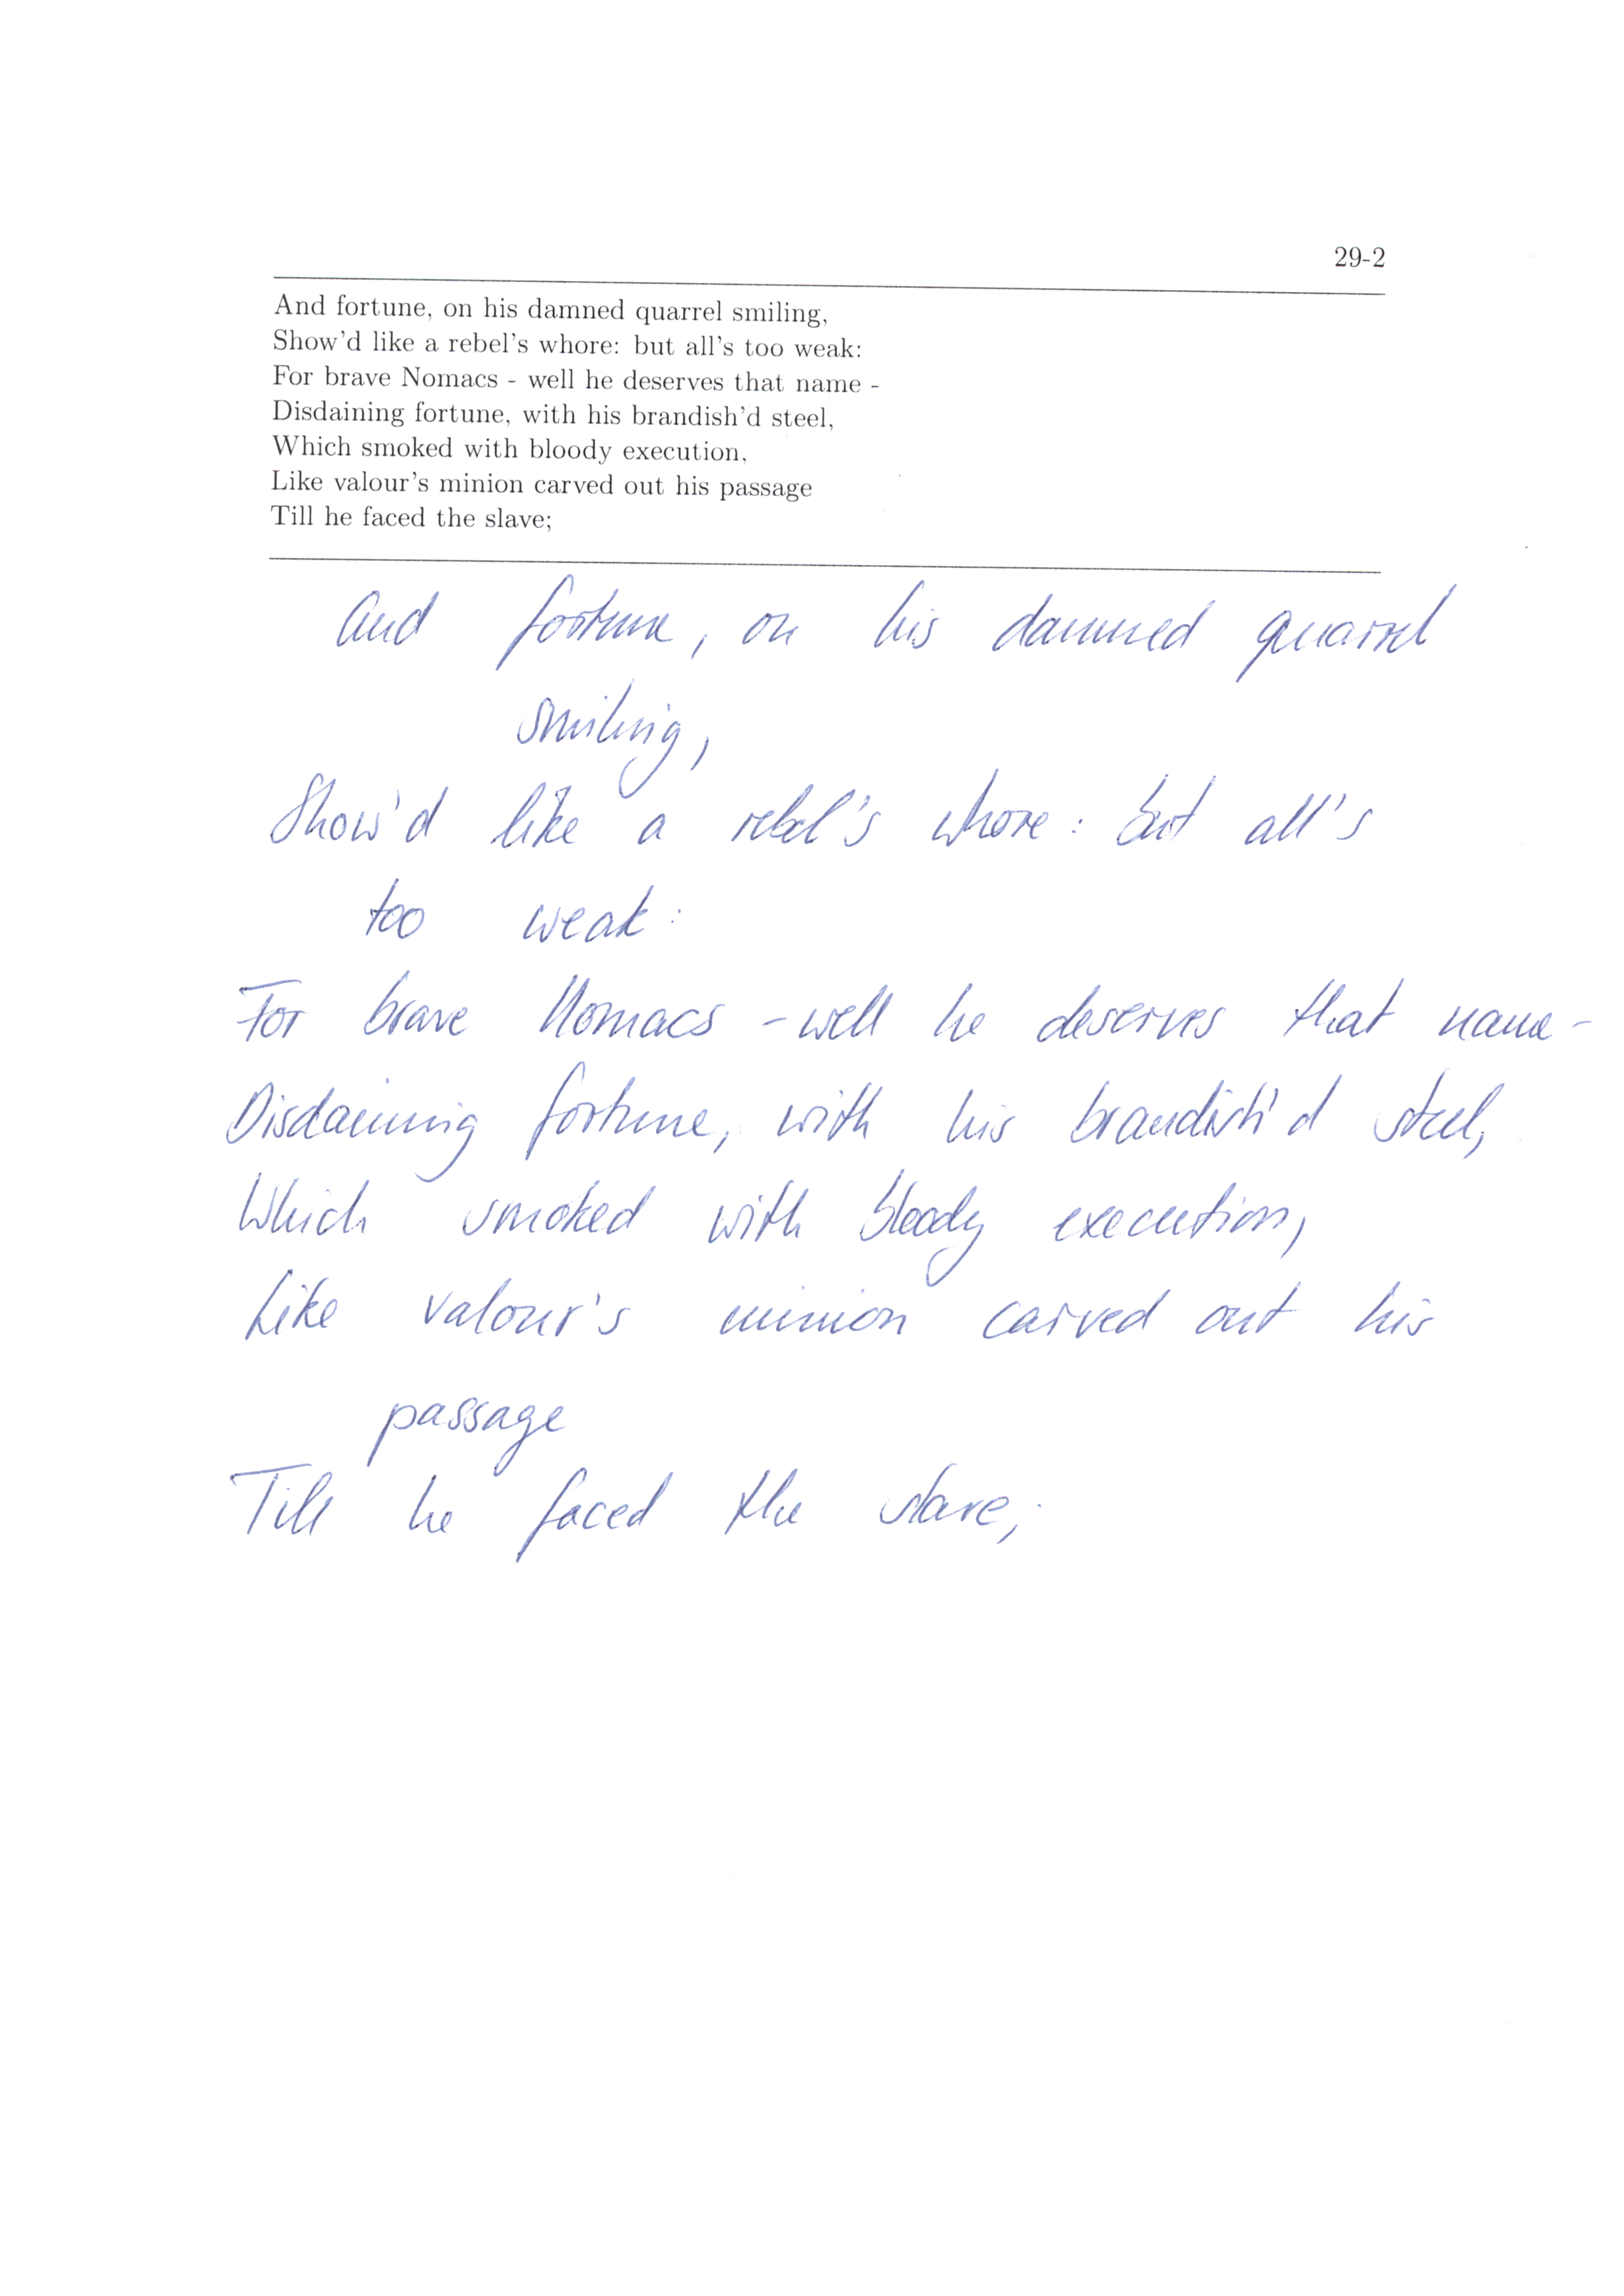 29-2
And fortune, on his damned quarrel smiling,
Show'd like a rebel's whore: but all's too weak:
For brave Nomacs - well he deserves that name -
Disdaining fortune, with his brandish'd steel,
Which smoked with bloody execution,
Like valour's minion carved out his passage
Till he faced the slave;
And fortune, on his damned quarrel
smiling,
Show'd like a rebel's whore: but all's
too weak:
For brave Nomacs - well he deserves that name -
Disdaining fortune, with his brandish'd steel,
Which smoked with bloody execution,
Like valour's minion carved out his
passage
Till he faced the slave;